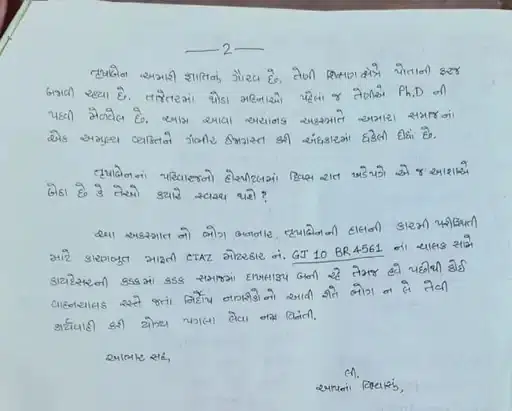 — 2 —
તૃષાબેન અમારી જ્ઞાતિનું ગૌરવ છે. તેણી શિક્ષણક્ષેત્રે પોતાની ફરજ
બજાવી રહ્યા છે. તાજેતરમાં થોડા મહિનાઓ પહેલાં જ તેણીએ Ph.D ની
પદવી મેળવેલ છે. આમ આવા અચાનક અકસ્માતે અમારા સમાજનાં
એક અમૂલ્ય વ્યક્તિને ગંભીર ઈજાગ્રસ્ત કરી અંધકારમાં ધકેલી દીધાં છે.
તૃષાબેનનાં પરિવારજનો હોસ્પીટલમાં દિવસ રાત ખડેપગે એ જ આશાએ
બેઠા છે કે તેઓ ક્યારે સ્વસ્થ થશે?
આ અકસ્માત નો ભોગ બનનાર, તૃષાબેનની હાલની કારમી પરીસ્થિતી
માટે કારણભુત મારૂતી CIAZ મોટરકાર નં. GJ 10 BR 4561 નાં ચાલક સામે
કાયદેસરની કડકમાં કડક સમાજમાં દાખલારૂપ બની રહે તેમજ હવે પછીથી કોઈ
વાહનચાલક રસ્તે જતાં નિર્દોષ નાગરીકોનો આવી રીતે ભોગ ન લે તેવી
કાર્યવાહી કરી યોગ્ય પગલા લેવા નમ્ર વિનંતી.
આભાર સહ,
લી.
આપનાં વિશ્વાસુ,